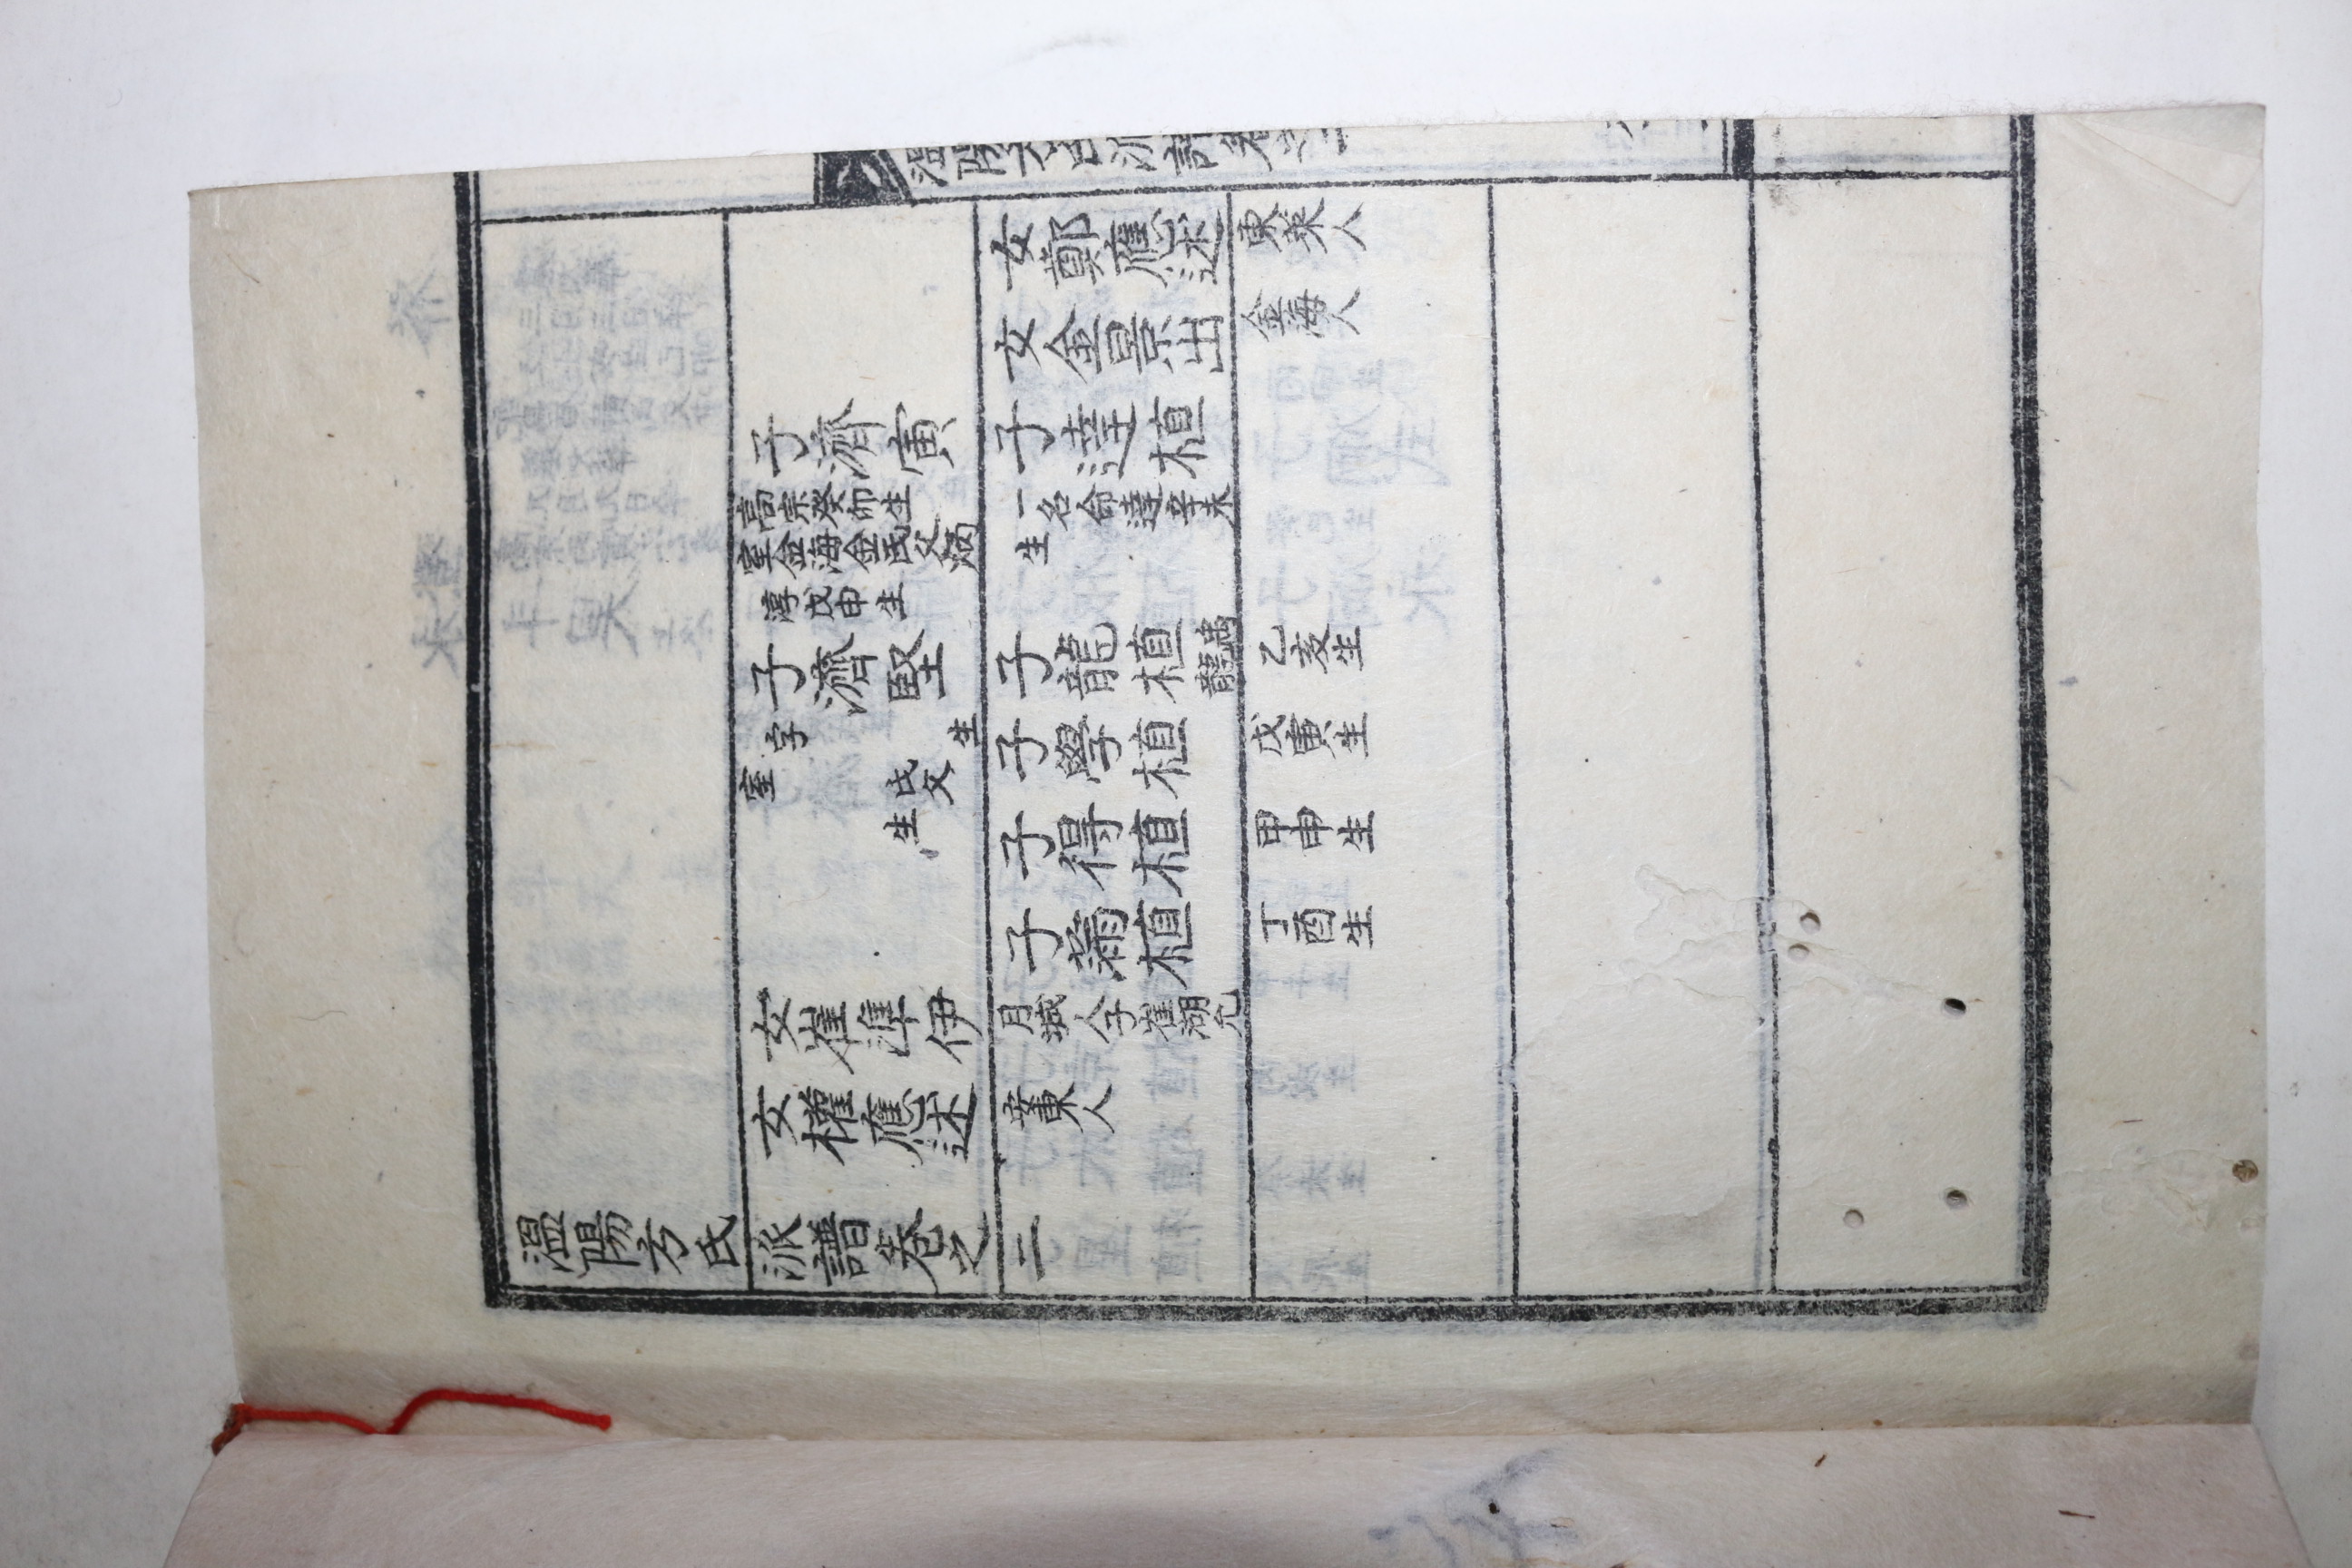 女鄭應述
東萊人
女金景出
金海人
子濟寅
高宗癸卯生
室金海金氏父炳
淳戊申生
子達植
一名命達辛未
生
子濟堅
字
生
室
氏父
生
子龍植
禹
龍
乙亥生
子學植
戊寅生
子得植
甲申生
子萳植
丁酉生
女崔準伊
月城人子崔湖允
女權應述
安東人
溫陽方氏派譜卷之二